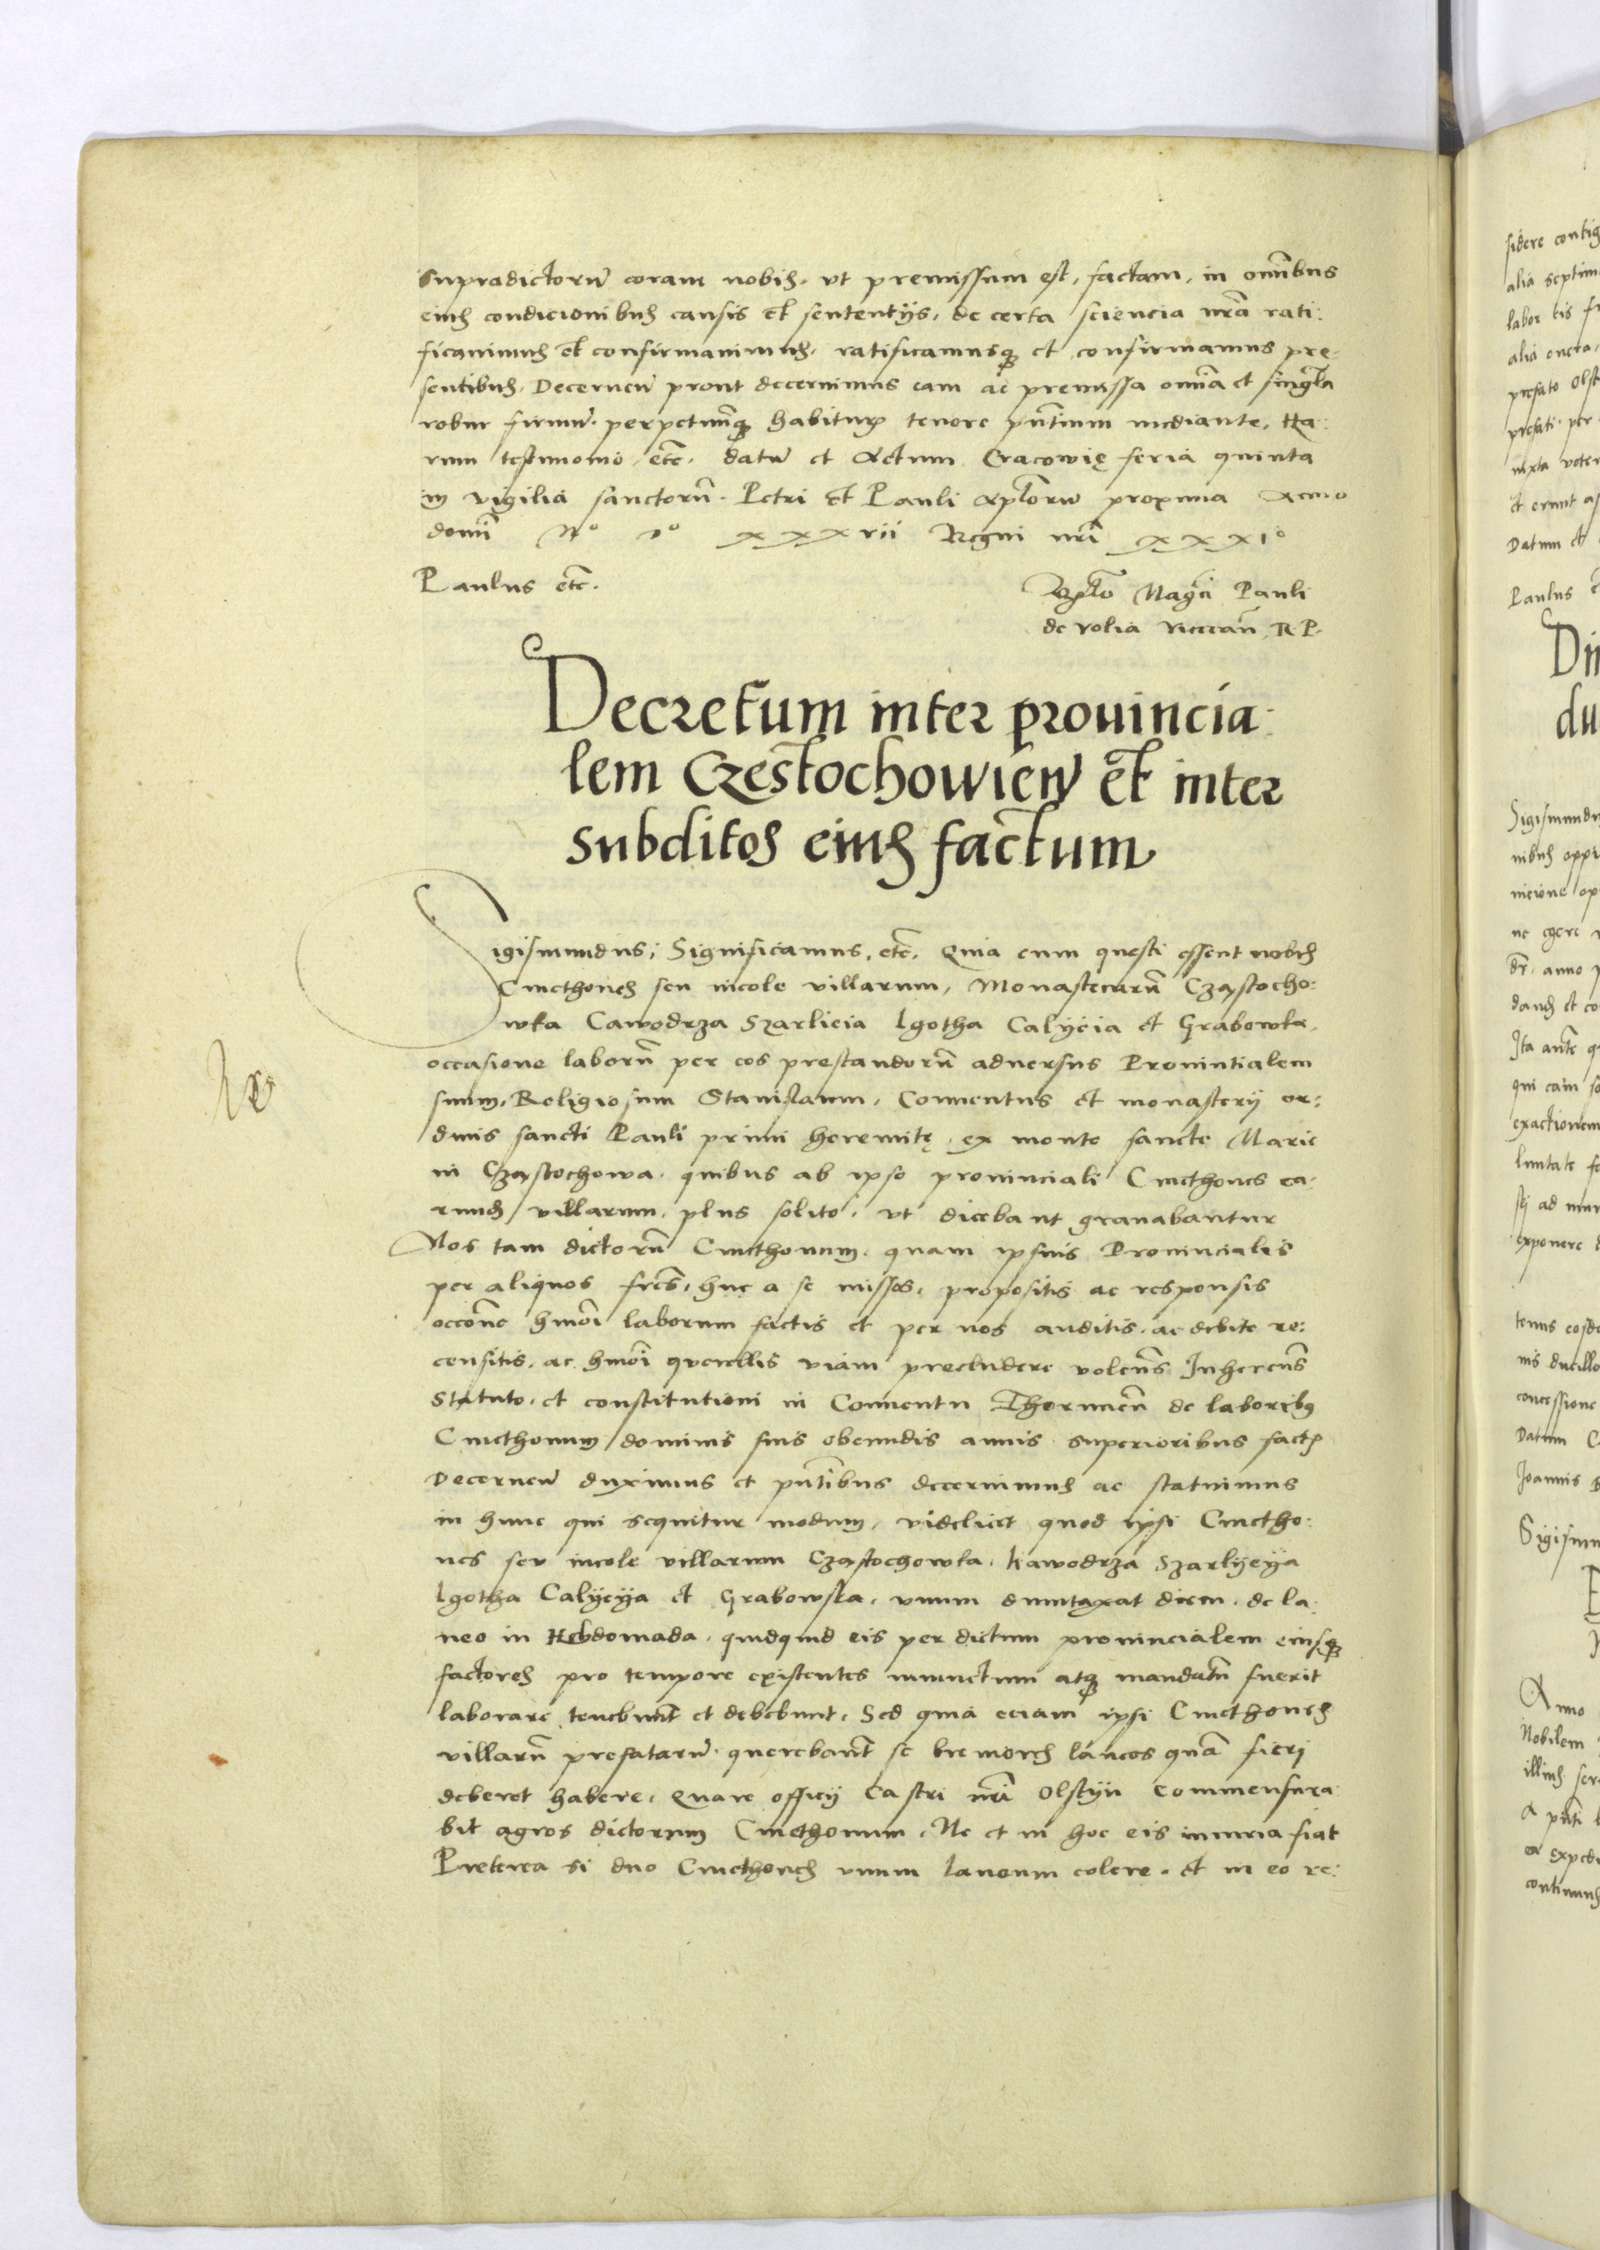 supradictorum coram nobis, ut premissum est, factam, in omnibus
eius condicionibus causis et sententys, de certa sciencia nra rati:
ficauimus et confirmauimus, ratificamusque et confirmamus pre:
sentibus. Decernen prout decernimus eam ac premissa omnia et singula
robur firmum perpetuumque habitur tenore pntium mediante, Ha:
rum testimonio, etc. datum et Actum Cracowię feria quinta
in vigilia sanctorum Petri et Pauli Aplorum proxima Anno
domi Mo Do xxxvii Regni nri xxxio
Paulus etc.
Magci Pauli
de volia vicecan R P.
Decretum inter prouincia:
lem Czestochowien et inter
subditos eius factum
Sigismundus, Significamus, etc. Quia cum questi essent nobis
Cmethones seu incole villarum, Monasterium Czastocho:
wka Cawodrza Szarlicia lgotha Calycia et Grabowka,
occasione laborum per eos prestandorum aduersus Prouintialem
suum, Religiosum Stanislaum, Conuentus et monastery or:
dinis sancti Pauli primi heremitę ex monte sancte Marie
in Czastochowa, quibus ab ipso prouinciali Cmethones ea:
rund villarum, plus solito, ut dicebant grauabantur
Nos tam dictorum Cmethonum, quam ipsius Prouincialis
per aliquos frēs, huc a se missos, propositis ac responsis
occone hmoi laborum factis et per nos auditis, ac debite re:
censitis, ac hmoi querellis viam precludere volens Inherens
statuto, et constitutioni in Conuentu Thorunen de laboribus
Cmethonum dominis suis obeundis annis superioribus facte
Decernen duximus et pntibus decernimus ac statuimus
in hunc qui sequitur modum, videlicet quod ipsi Cmetho:
nes seu incole villarum Czastochowka, Kawodrza Szarlyeya
lgotha Calyeya et Grabowka, unum dumtaxat diem, de la:
neo in Hebdomada, quidquid eis per dictum prouincialem eiusque
factores pro tempore existentes iniunctum atque mandatum fuerit
laborare tenebunt et debebunt. Sed quia eciam ipsi Cmethones
villarum prefatarum querebant se breuiores laneos quam fieri
deberet habere, Quare officy Castri nri Olstyn Commensura:
bit agros dictorum Cmethonum, Ne et in hoc eis iniuria fiat
Preterea si duo Cmethones unum laneum colere, et in eo re: